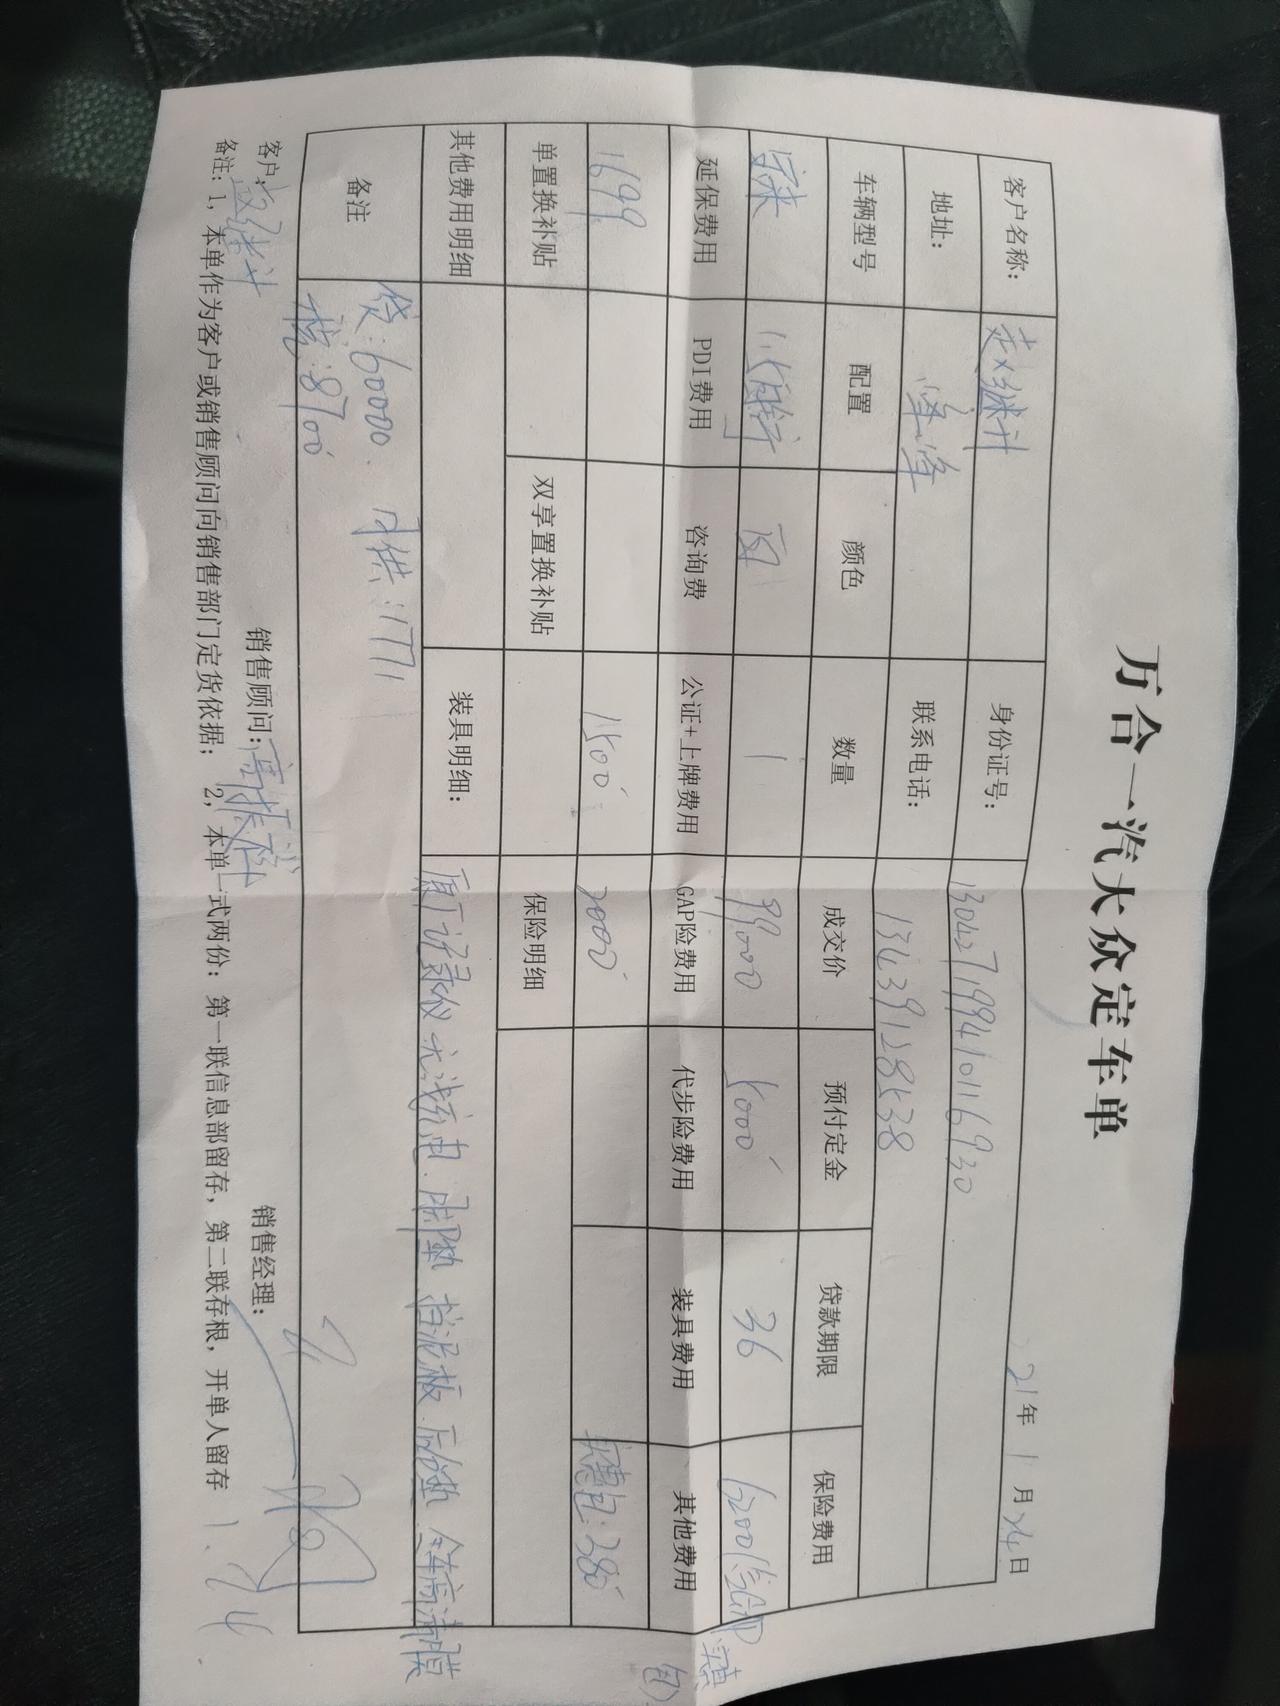 万合一汽大众定车单
21年 1月24日
客户名称： 赵继升 身份证号： 130427199410116930
地址： 峰峰 联系电话：
车辆型号 配置 颜色 数量 成交价 预付定金 贷款期限 保险费用
宝来 白 1 99000 5000 36
延保费用 PDI费用 咨询费 公证+上牌费用 GAP险费用 代步险费用 装具费用 其他费用
1699 1500 2000 380
单置换补贴 双享置换补贴 保险明细
其他费用明细 装具明细： 原厂记录仪 无线充电 脚垫 挡泥板 后备垫 全车高清膜
备注 贷：60000. 月供：1771
税：8700
客户： 赵继升 销售顾问： 销售经理：
备注：1，本单作为客户或销售顾问向销售部门定货依据； 2，本单一式两份：第一联信息部留存，第二联存根，开单人留存
1.24